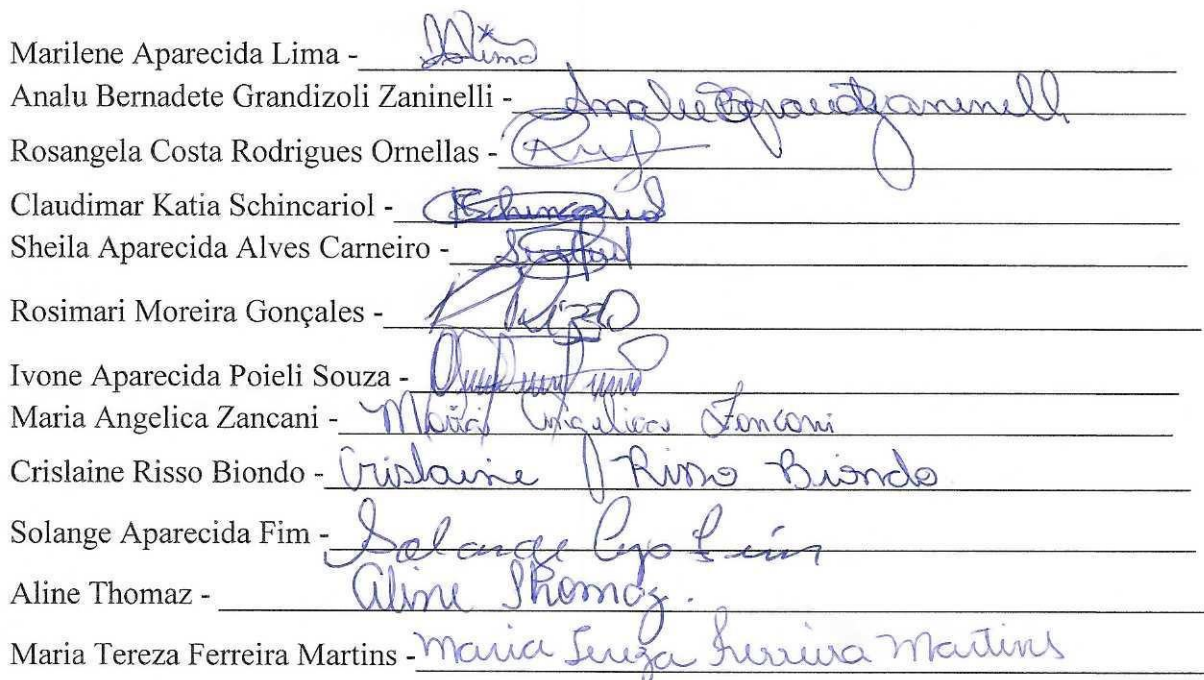 Marilene Aparecida Lima - Lima
Analu Bernadete Grandizoli Zaninelli -
Rosangela Costa Rodrigues Ornellas -
Claudimar Katia Schincariol - Schincariol
Sheila Aparecida Alves Carneiro -
Rosimari Moreira Gonçales -
Ivone Aparecida Poieli Souza -
Maria Angelica Zancani - Maria Angelica Zancani
Crislaine Risso Biondo - Crislaine Risso Biondo
Solange Aparecida Fim - Solange Ap Fim
Aline Thomaz - Aline Thomaz.
Maria Tereza Ferreira Martins - Maria Tereza Ferreira Martins